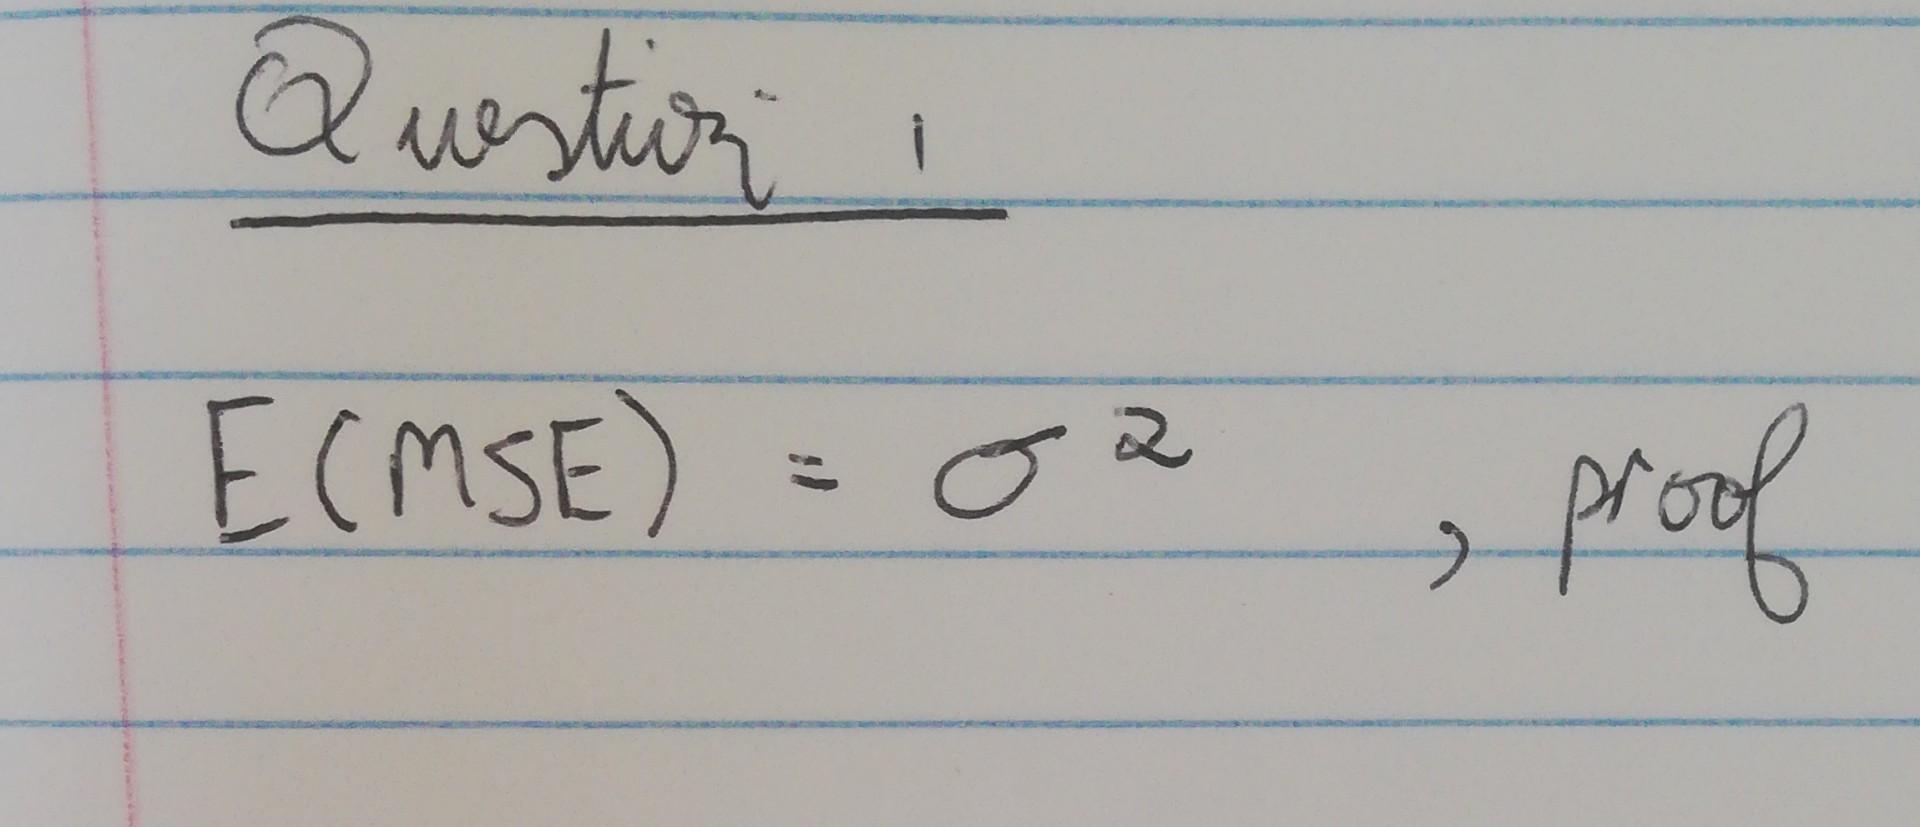 Question 1
E(MSE) = σ², proof